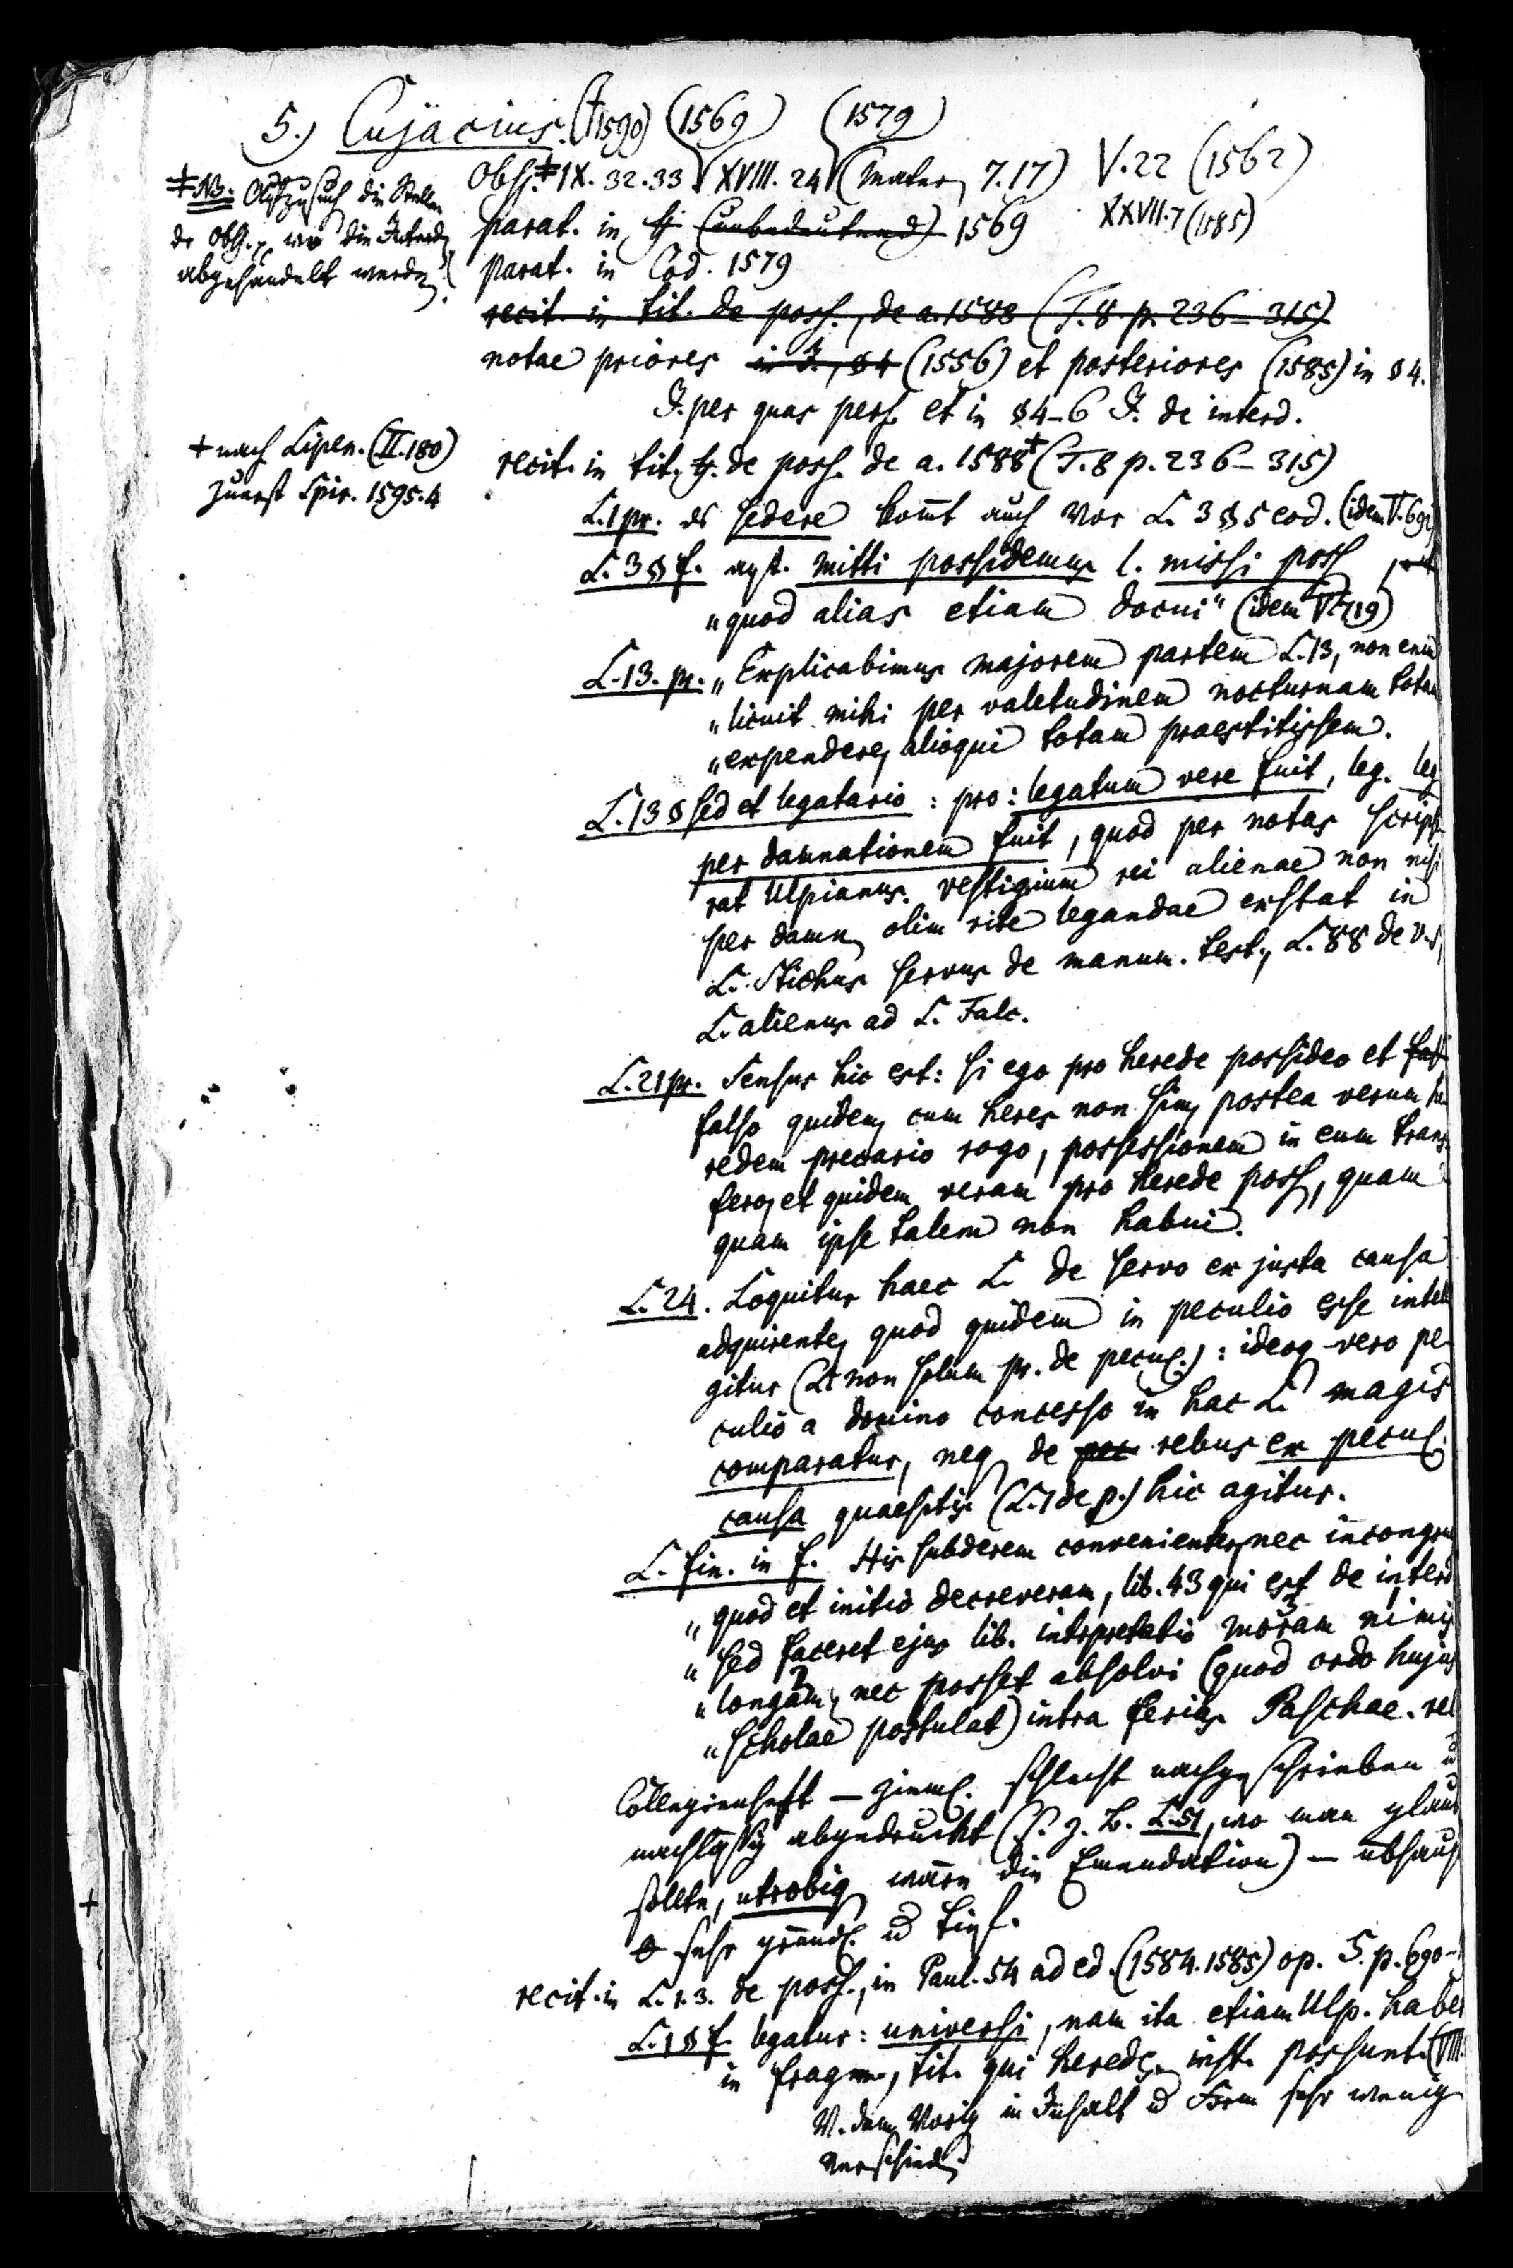 5.) Cujacius. († 1590) (1569) (1579)
Obs. ‡ IX. 32. 33 XVIII. 24 (Mater. 7. 17) V. 22 (1562)
‡ NB. Aufzusuch die Stellen
der Obs. pp wo die Interd.
abgehandelt werden.
parat. in (unbedeutend) 1569 XXVII. 7 (1585)
parat. in Cod. 1579
recit. in tit. de poss., de a. 1588 (T. 8 p. 236–315)
notae priores in J., §4 (1556) et posteriores (1585) in §4.
J. per quas pers. et in §4–6 J. de interd.
+ nach Lipen. (II. 180)
zuerst Spir. 1595. 4
recit. in tit. de poss. de a. 1588 + (T. 8 p. 236–315)
L. 1 pr. sedere kommt auch vor L. 3 § 5 eod. (idem V. 692)
L. 3 § f. anst. mitti possidemus l. missi poss,
„quod alias etiam docui“ (idem V. 719)
L. 13. pr. „Explicabimus majorem partem L. 13, non enim
„licuit mihi per valetudinem nocturnam totam
„expendere, alioqui totam praestitissem.
L. 13 § sed et legatario : pro: legatum vere fuit, leg. leg
per damnationem fuit, quod per notas scrips-
rat Ulpianus. vestigium rei alienae non nisi
per damn. olim rite legandae exstat in
L. Stichus servus de manum. test., L. 88 de v. s,
L. alienus ad L. Falc.
L. 21 pr. Sensus hic est: si ego pro herede possideo et
falso quidem, cum heres non sim, postea verum he-
redem precario rogo, possessionem in eum trans-
fero, et quidem veram pro herede poss, quam
quam ipse talem non habui.
L. 24. Loquitur haec L. de servo ex justa causa
adquirente, quod quidem in peculio esse intell
gitur (L. non solum pr. de pecul.) : ideoq vero pe-
culio a domino concesso in hac L. magis
comparatur, neq de pec rebus ex pecul.
causa quaesitis (L. 1 de p.) hic agitur.
L. fin. in f. His subderem convenienter, nec incongrue
„quod et initio decreveram, lib. 43 qui est de interd
„sed faceret ejus lib. intrpretatio moram nimis
„longam, nec posset absolvi (quod ordo hujus
„scholae postulat) intra ferias Paschae. rel
Collegienheft – zieml. schlecht nachgeschrieben u
nachläßig abgedruckt (s. z. B. L. 51, wo man glaub
sollte, utrobiq wäre die Emendation) – überhaupt
sehr gründl. u tief.
recit. in L. 1. 3. de poss., in Paul. 54 ad ed. (1584. 1585) op. 5. p. 690–
L. 1 § f. legatur: universi, nam ita etiam Ulp. habet
in fragm., tit. qui heredes inst. possunt. (VIII.
V. dem Vorig in Inhalt u Form sehr wenig
verschieden